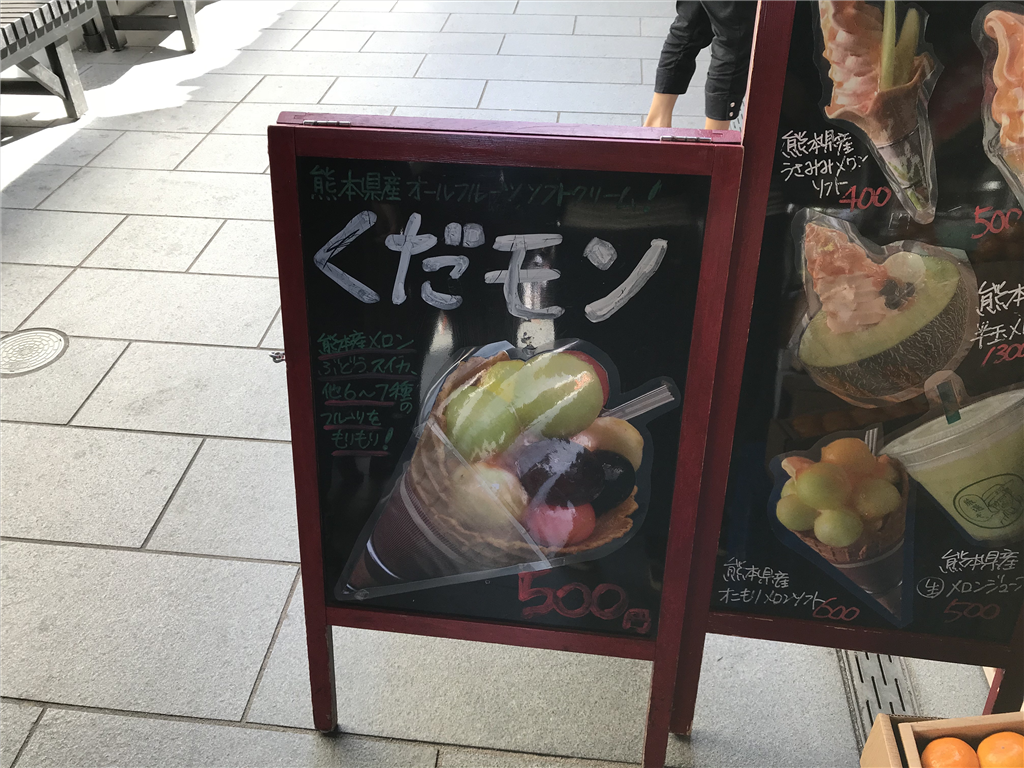 熊本県産 オールフルーツ ソフトクリーム!
くだモン
熊本産メロン
ぶどうスイカ、
他6〜7種の
フルーツを
もりもり!
500円
熊本県産
うさみみメロン
ソフト
400
500
熊本
半玉メロ
1300
熊本県産
オニモリメロンソフト
600
熊本県産
生メロンジュース
500